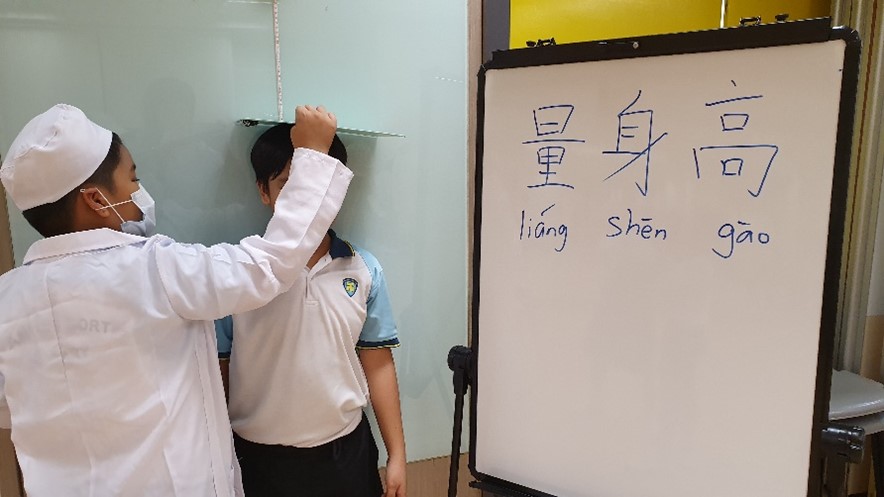 量身高
liáng shēn gāo